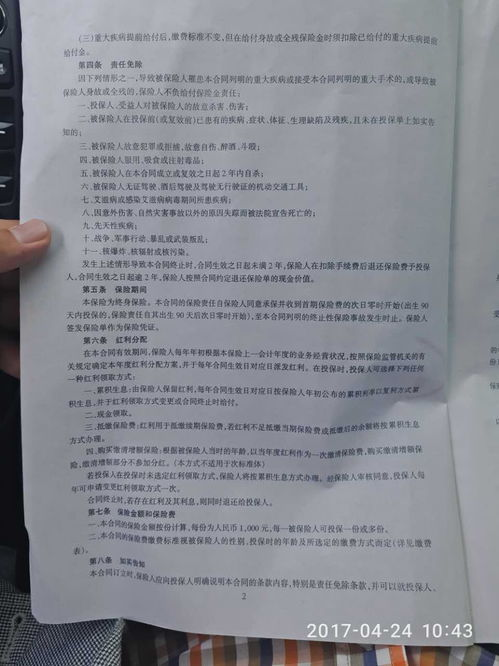 (三)重大疾病提前给付后,缴费标准不变,但在给付身故或全残保险金时须扣除已给付的重大疾病提前
给付金。
第四条 责任免除
因下列情形之一,导致被保险人罹患本合同列明的重大疾病或接受本合同列明的重大手术的,或导致被
保险人身故或全残的,保险人不负给付保险金责任:
一、投保人、受益人对被保险人的故意杀害、伤害;
二、被保险人在投保前(或复效前)已患有的疾病、症状、体征、生理缺陷及残疾,且未在投保单上如实告
知的;
三、被保险人故意犯罪或拒捕,故意自伤、醉酒、斗殴;
四、被保险人服用、吸食或注射毒品;
五、被保险人在本合同成立或复效之日起2年内自杀;
六、被保险人无证驾驶、酒后驾驶及驾驶无行驶证的机动交通工具;
七、艾滋病或感染艾滋病病毒期间所患疾病;
八、因意外伤害、自然灾害事故以外的原因失踪而被法院宣告死亡的;
九、先天性疾病;
十、战争、军事行动、暴乱或武装叛乱;
十一、核爆炸、核辐射或核污染。
发生上述情形导致本合同终止时,合同生效之日起未满2年,保险人在扣除手续费后退还保险费予投保
人,合同生效之日起逾2年,保险人按照合同约定退还保险单的现金价值。
第五条 保险期间
本保险为终身保险。本合同的保险责任自保险人同意承保并收到首期保险费的次日零时开始(出生90
天内投保的,保险责任自其出生90天后次日零时开始),至本合同列明的终止性保险事故发生时止。保险人
签发保险单作为保险凭证。
第六条 红利分配
在本合同有效期间,保险人每年年初根据本保险上一会计年度的业务经营状况,按照保险监管机关的有
关规定确定本年度红利分配方案,并于每年合同生效日对应日派发红利。在投保时,投保人可选择下列任何
一种红利领取方式:
一、累积生息:由保险人保留红利,每年合同生效日对应日按保险人年初公布的累积利率以复利方式累
积生息,并于红利领取方式变更或合同终止时给付。
二、现金领取。
三、抵缴保险费:红利用于抵缴续期保险费,若红利不足抵缴当期保险费或抵缴后的余额将按累积生息
方式办理。
四、购买缴清增额保险:根据被保险人当时的年龄,以当年度红利作为一次缴清保险费,购买缴清增额保
险,缴清增额部分不参加分红。(本方式不适用于次标准体)
若投保人在投保时未选定红利领取方式,保险人将按累积生息方式办理。经保险人审核同意,投保人每
年可申请变更红利领取方式一次。
合同终止时,若存在红利及其利息,则同时退还给投保人。
第七条 保险金额和保险费
一、本合同的保险金额按份计算,每份为人民币1,000元,每一被保险人可投保一份或多份。
二、本合同的保险费缴费标准视被保险人的性别、投保时的年龄及所选定的缴费方式而定(详见缴费
表)。
第八条 如实告知
本合同订立时,保险人应向投保人明确说明本合同的条款内容,特别是责任免除条款,并可以就投保人、
2
2017-04-24 10:43